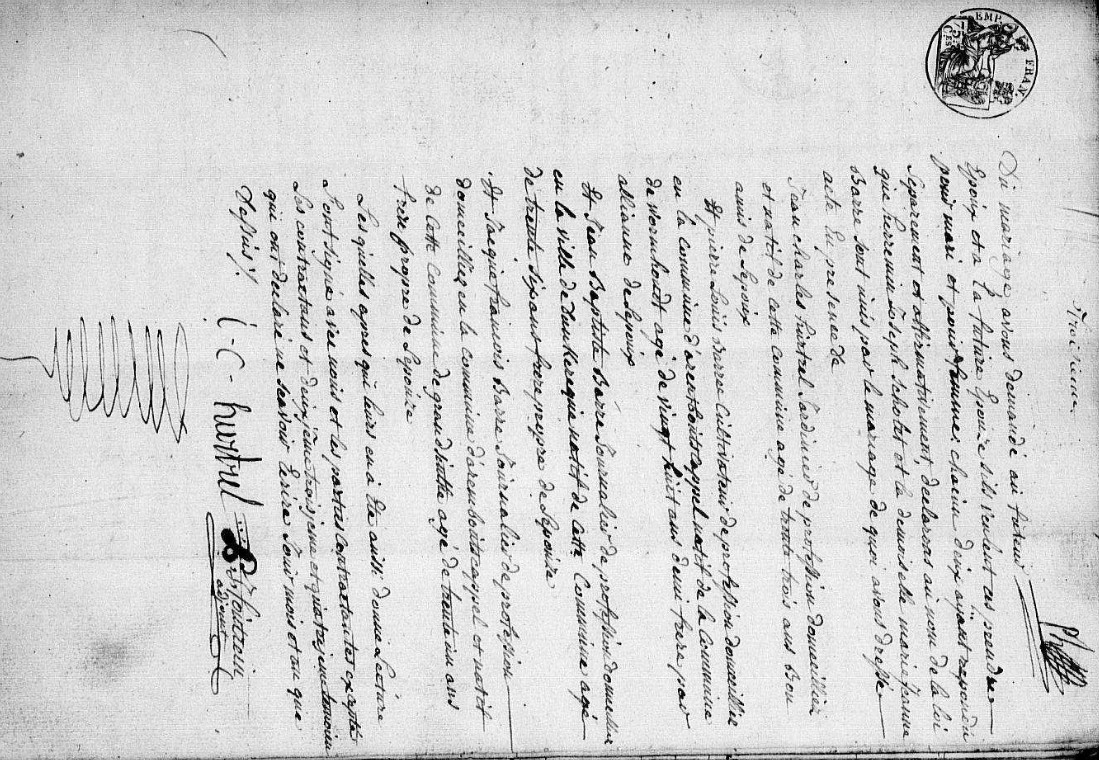 EMP. FRAN.
75 Ces
Troisieme
Du mariage avons demandé au futeur
Epoux et a la future Epouse s'ils veulent ces prendre
pour mari et pour femme, chacun deux aÿant repondu
separement et affirmativement, declarons au nom de la loi
que Joseph et la demoiselle marie Jeanne
Barre sont unis par le mariage de quoi avons dressé
acte En presence de
Jean charles hurtrel Jardinier de profession domeillier
et natif de cette commune agé de trente trois ans Bon
amis de L'epoux
Et pierre Louis Barre Cultivateur de profession domeillie
en la commune d'arenboutscappel natif de la Commune
de wormhoudt agé de vingt huit ans demi frere par
allianse de L'epoux
Et Jean Baptiste Barre Journalier de profession domeillie
en la ville de dunkerque natif de Cette Commune agé
de trente six ans frere propre de L'epouse
Et Jacque francois Barre Journalié de profession
domeilliez en la commune d'arenboutscappel et natif
de Cette Commune de grandsinthe agé de trente un ans
frere propre de L'epouse
Lesquelles apres qu'il leurs en a Ete aussi donne Lecture
l'ont signé avec nous et les parties Contractantes excepté
Les contractans et deuxjeme troisjeme et quatrjeme temoin
qui ont declaré ne scavoir Ecrire Jour mois et an que
Dessus
i - C - hurtrel
adjoint